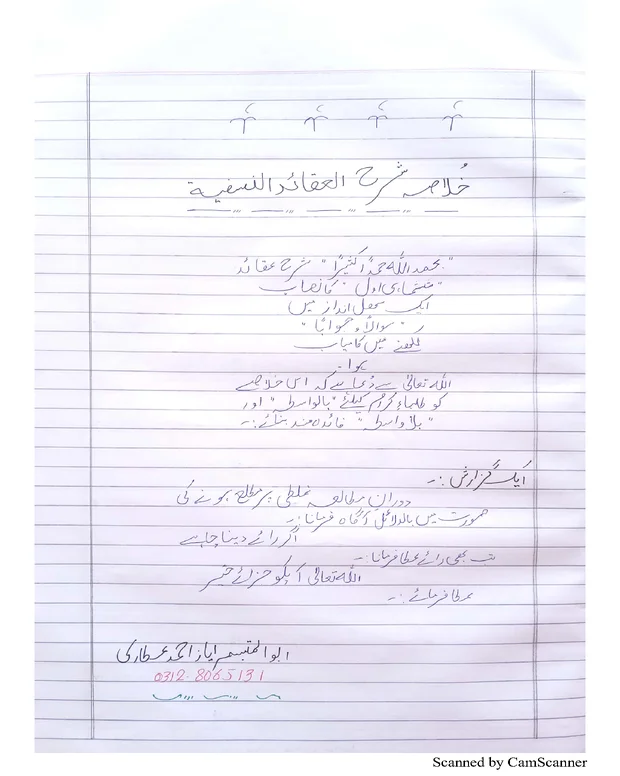 خُلاصہ شرح العقائد النسفیة
"بحمد اللہ حمدًا کثیرًا" شرح عقائد
"ششماہی اول" کا نصاب
ایک سھل انداز میں
"سوالًا و جوابًا"
لکھنے میں کامیاب
ہوا۔
اللہ تعالیٰ سے دُعا ہے کہ اس خلاصے
کو طلباءِ کرام کیلئے "بالواسطہ" اور
"بلاواسطہ" فائدہ مند بنائے:۔
ایک گزارش:۔
دورانِ مطالعہ غلطی پر مطلع ہونے کی
صورت میں بالدلائل آگاہ فرمانا:۔
اگر رائے دینا چاہے
تب بھی رائے عطا فرمانا:۔
اللہ تعالیٰ آپکو جزائے خیر
عطا فرمائے:۔
ابو المتبسم ایاز احمد عطاری
0312-8065131
Scanned by CamScanner